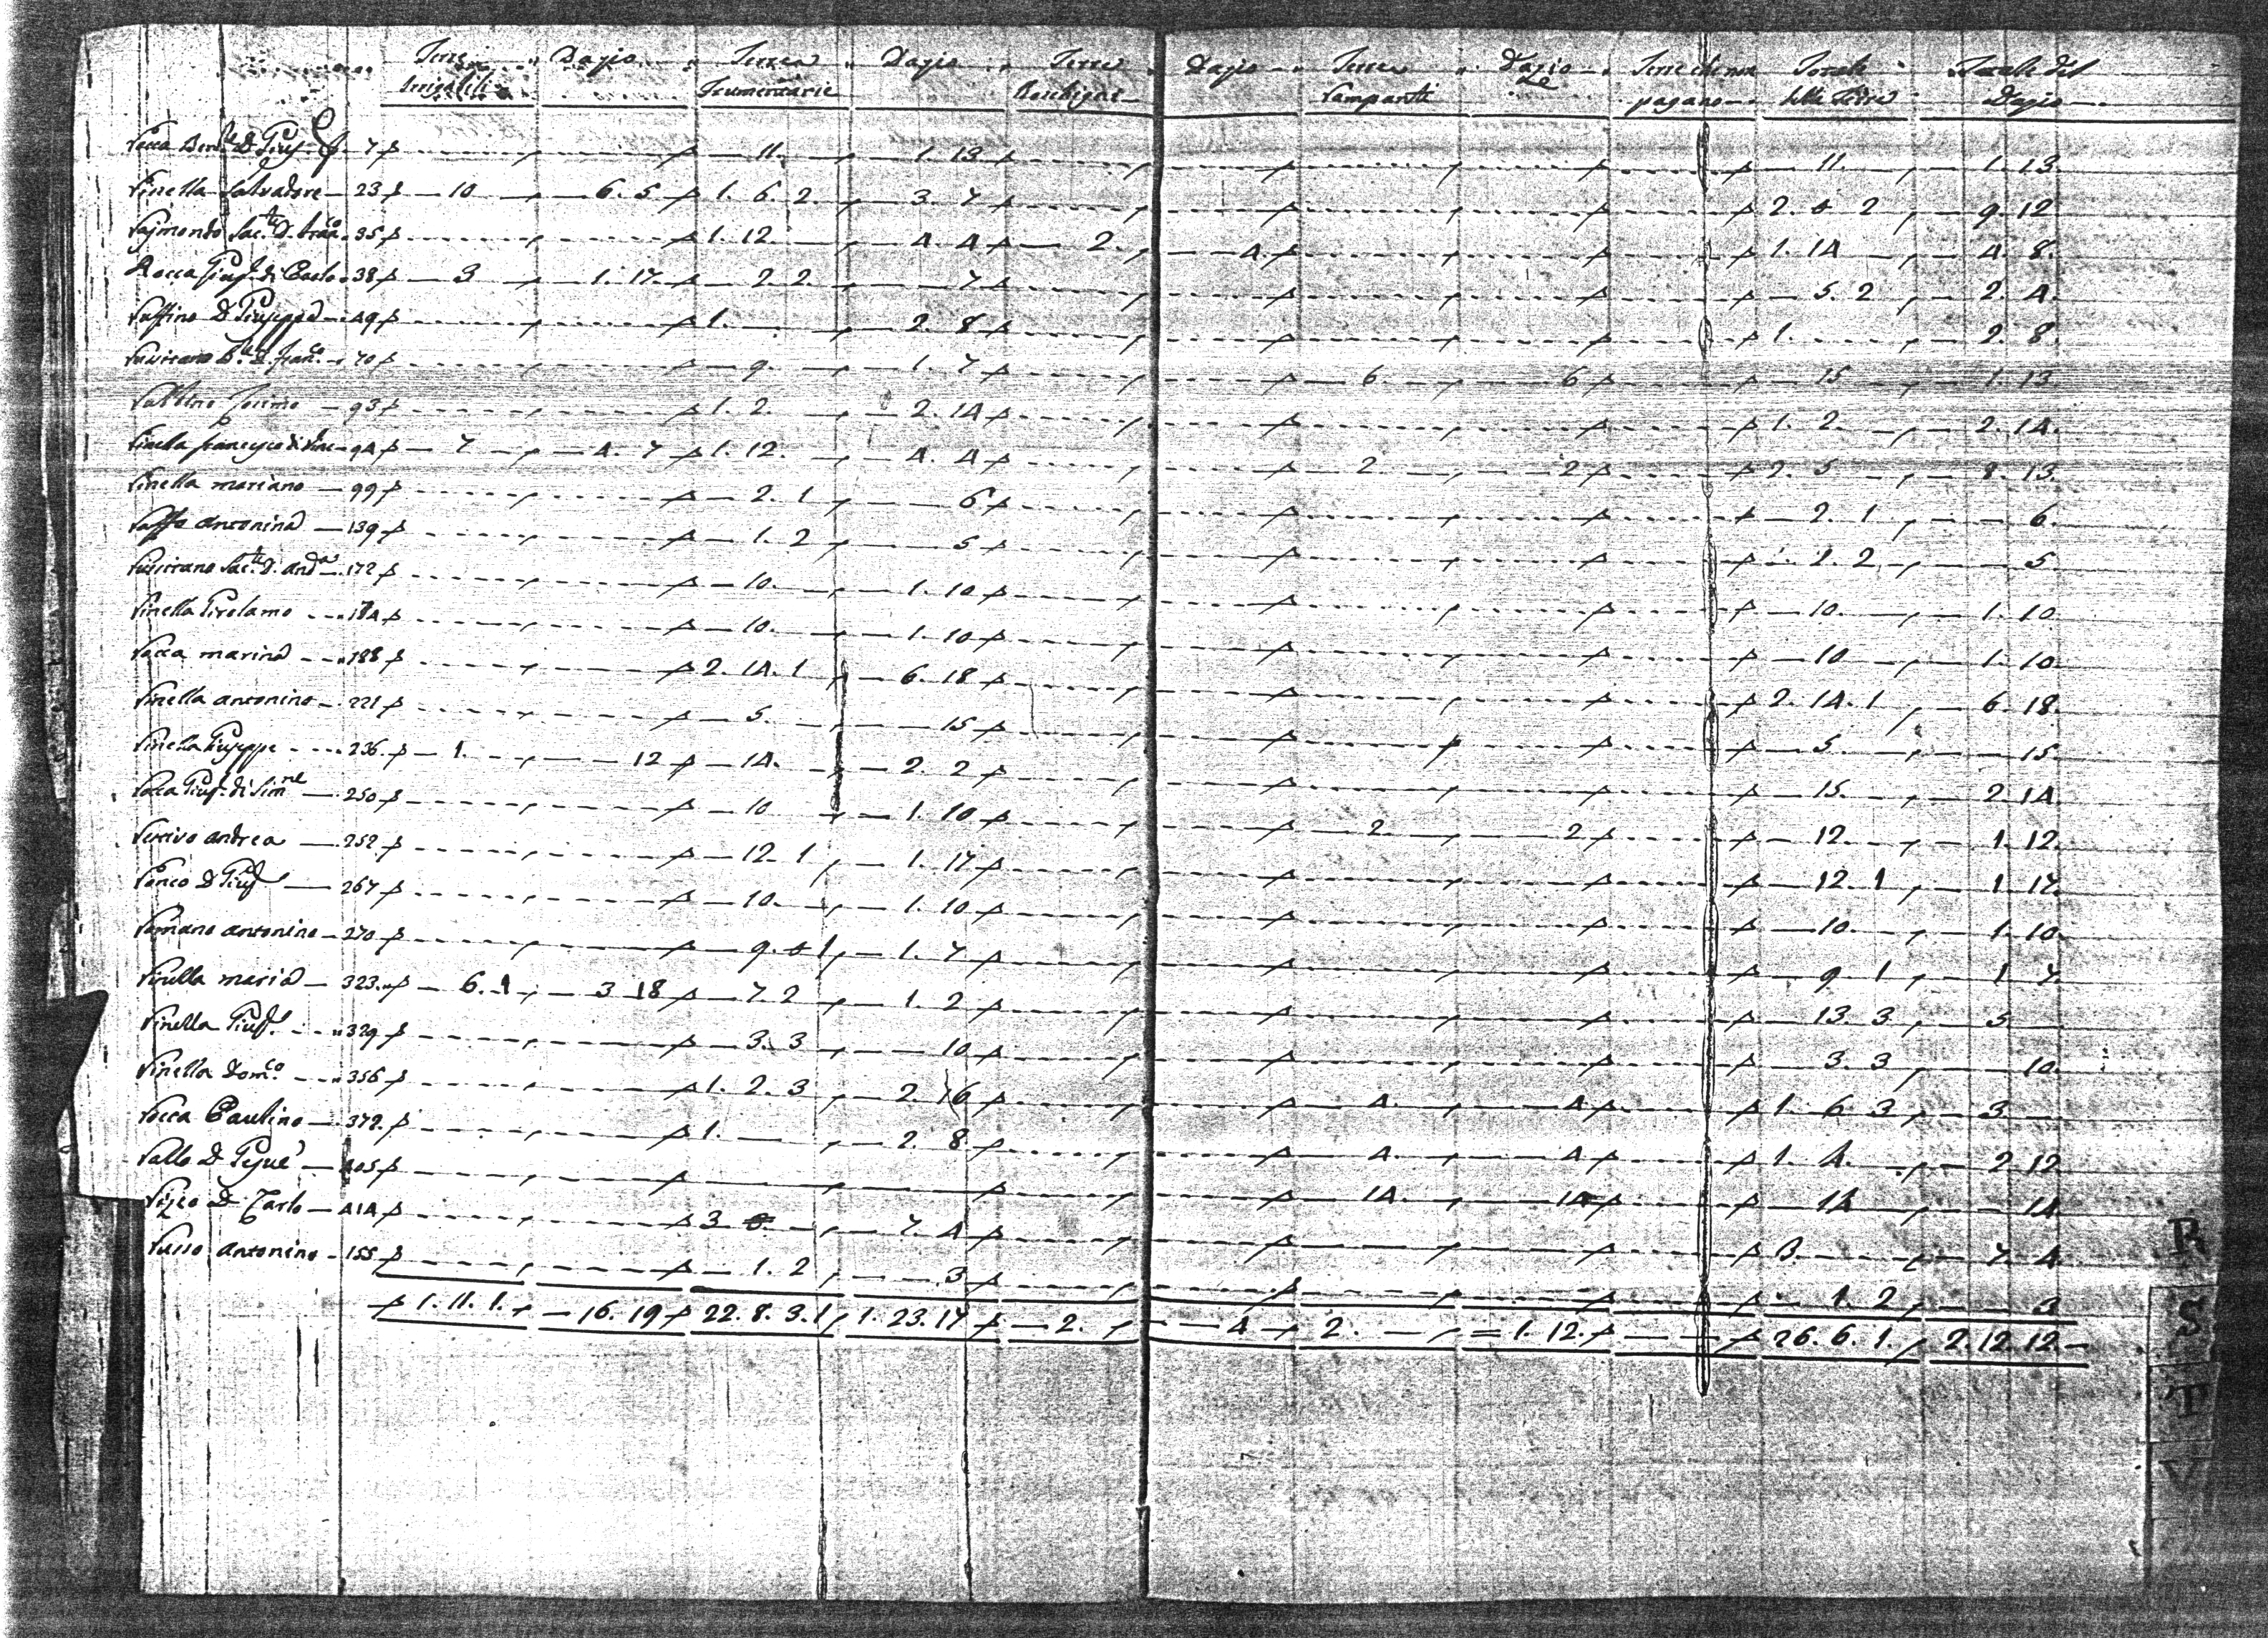 Terre Dazio Terre Dazio Terre Dazio Terre Dazio Terre che non Totale Totale del
Irrigabili Frumentarie Boschigne Rampanti pagano della Terra Dazio
Rocca D. Gius.e 7 11. 1. 13 11. 1. 13.
Rinella Salvadore 23 10 6. 5 1. 6. 2. 3. 7 2. 0 2 9. 12
Rajmondo Sac.te D. 35 1. 12. 4. 4 2. 4. 1. 14 4. 8.
Rocca Gius.e di Carlo 38 3 1. 17. 2. 2. 7 5. 2 2. 4.
Ruffino D. Giuseppe 49 1. 2. 8 1. 2. 8.
70 9. 1. 7 6. 6 15 1. 13
Cosimo 93 1. 2. 2. 14 1. 2. 2. 14.
Rinella Francesco di 94 7 4. 7 1. 12. 4. 4 2 2 2. 5 8. 13.
Rinella Mariano 99 2. 1 6 2. 1 6.
Antonina 139 1. 2 5 1. 2 5
Sac.te D. And.a 172 10. 1. 10 10. 1. 10
Rinella Girolamo 184 10. 1. 10 10 1. 10
Rocca Marina 188 2. 14. 1 6. 18 2. 14. 1 6. 18.
Rinella Antonino 221 5. 15 5. 15.
Rinella Giuseppe 236. 1. 12 14. 2. 2 15. 2. 14
Rocca Gius.e di Sim.ne 250 10 1. 10 2. 2 12. 1. 12.
Andrea 252. 12. 1 1. 17 12. 1 1 17.
D. Gius.e 267 10. 1. 10 10. 1. 10.
Romano Antonino 270 9. 1 1. 7 9 1 1 7.
Rinella Maria 323. 6. 1 3 18 7. 2 1. 2 13. 3 5
Rinella Gius.e 329 3. 3 10 3. 3 10.
Rinella Dom.co 356 1. 2. 3 2. 16 4. 4 1. 6 3 3
Rocca Paulino 372. 1. 2. 8 4. 4 1. 4. 2 12
Rallo D. 405 14. 14 14 14
Rizzo D. Carlo 414 3 7. 4 3. 7. 4.
Russo Antonino 155 1. 2 3 1. 2 3
1. 11. 1. 16. 19 22. 8. 3. 1 1. 23. 17 2. 4 2. 1. 12. 26. 6. 1. 2. 12. 12.
R
S
T
V